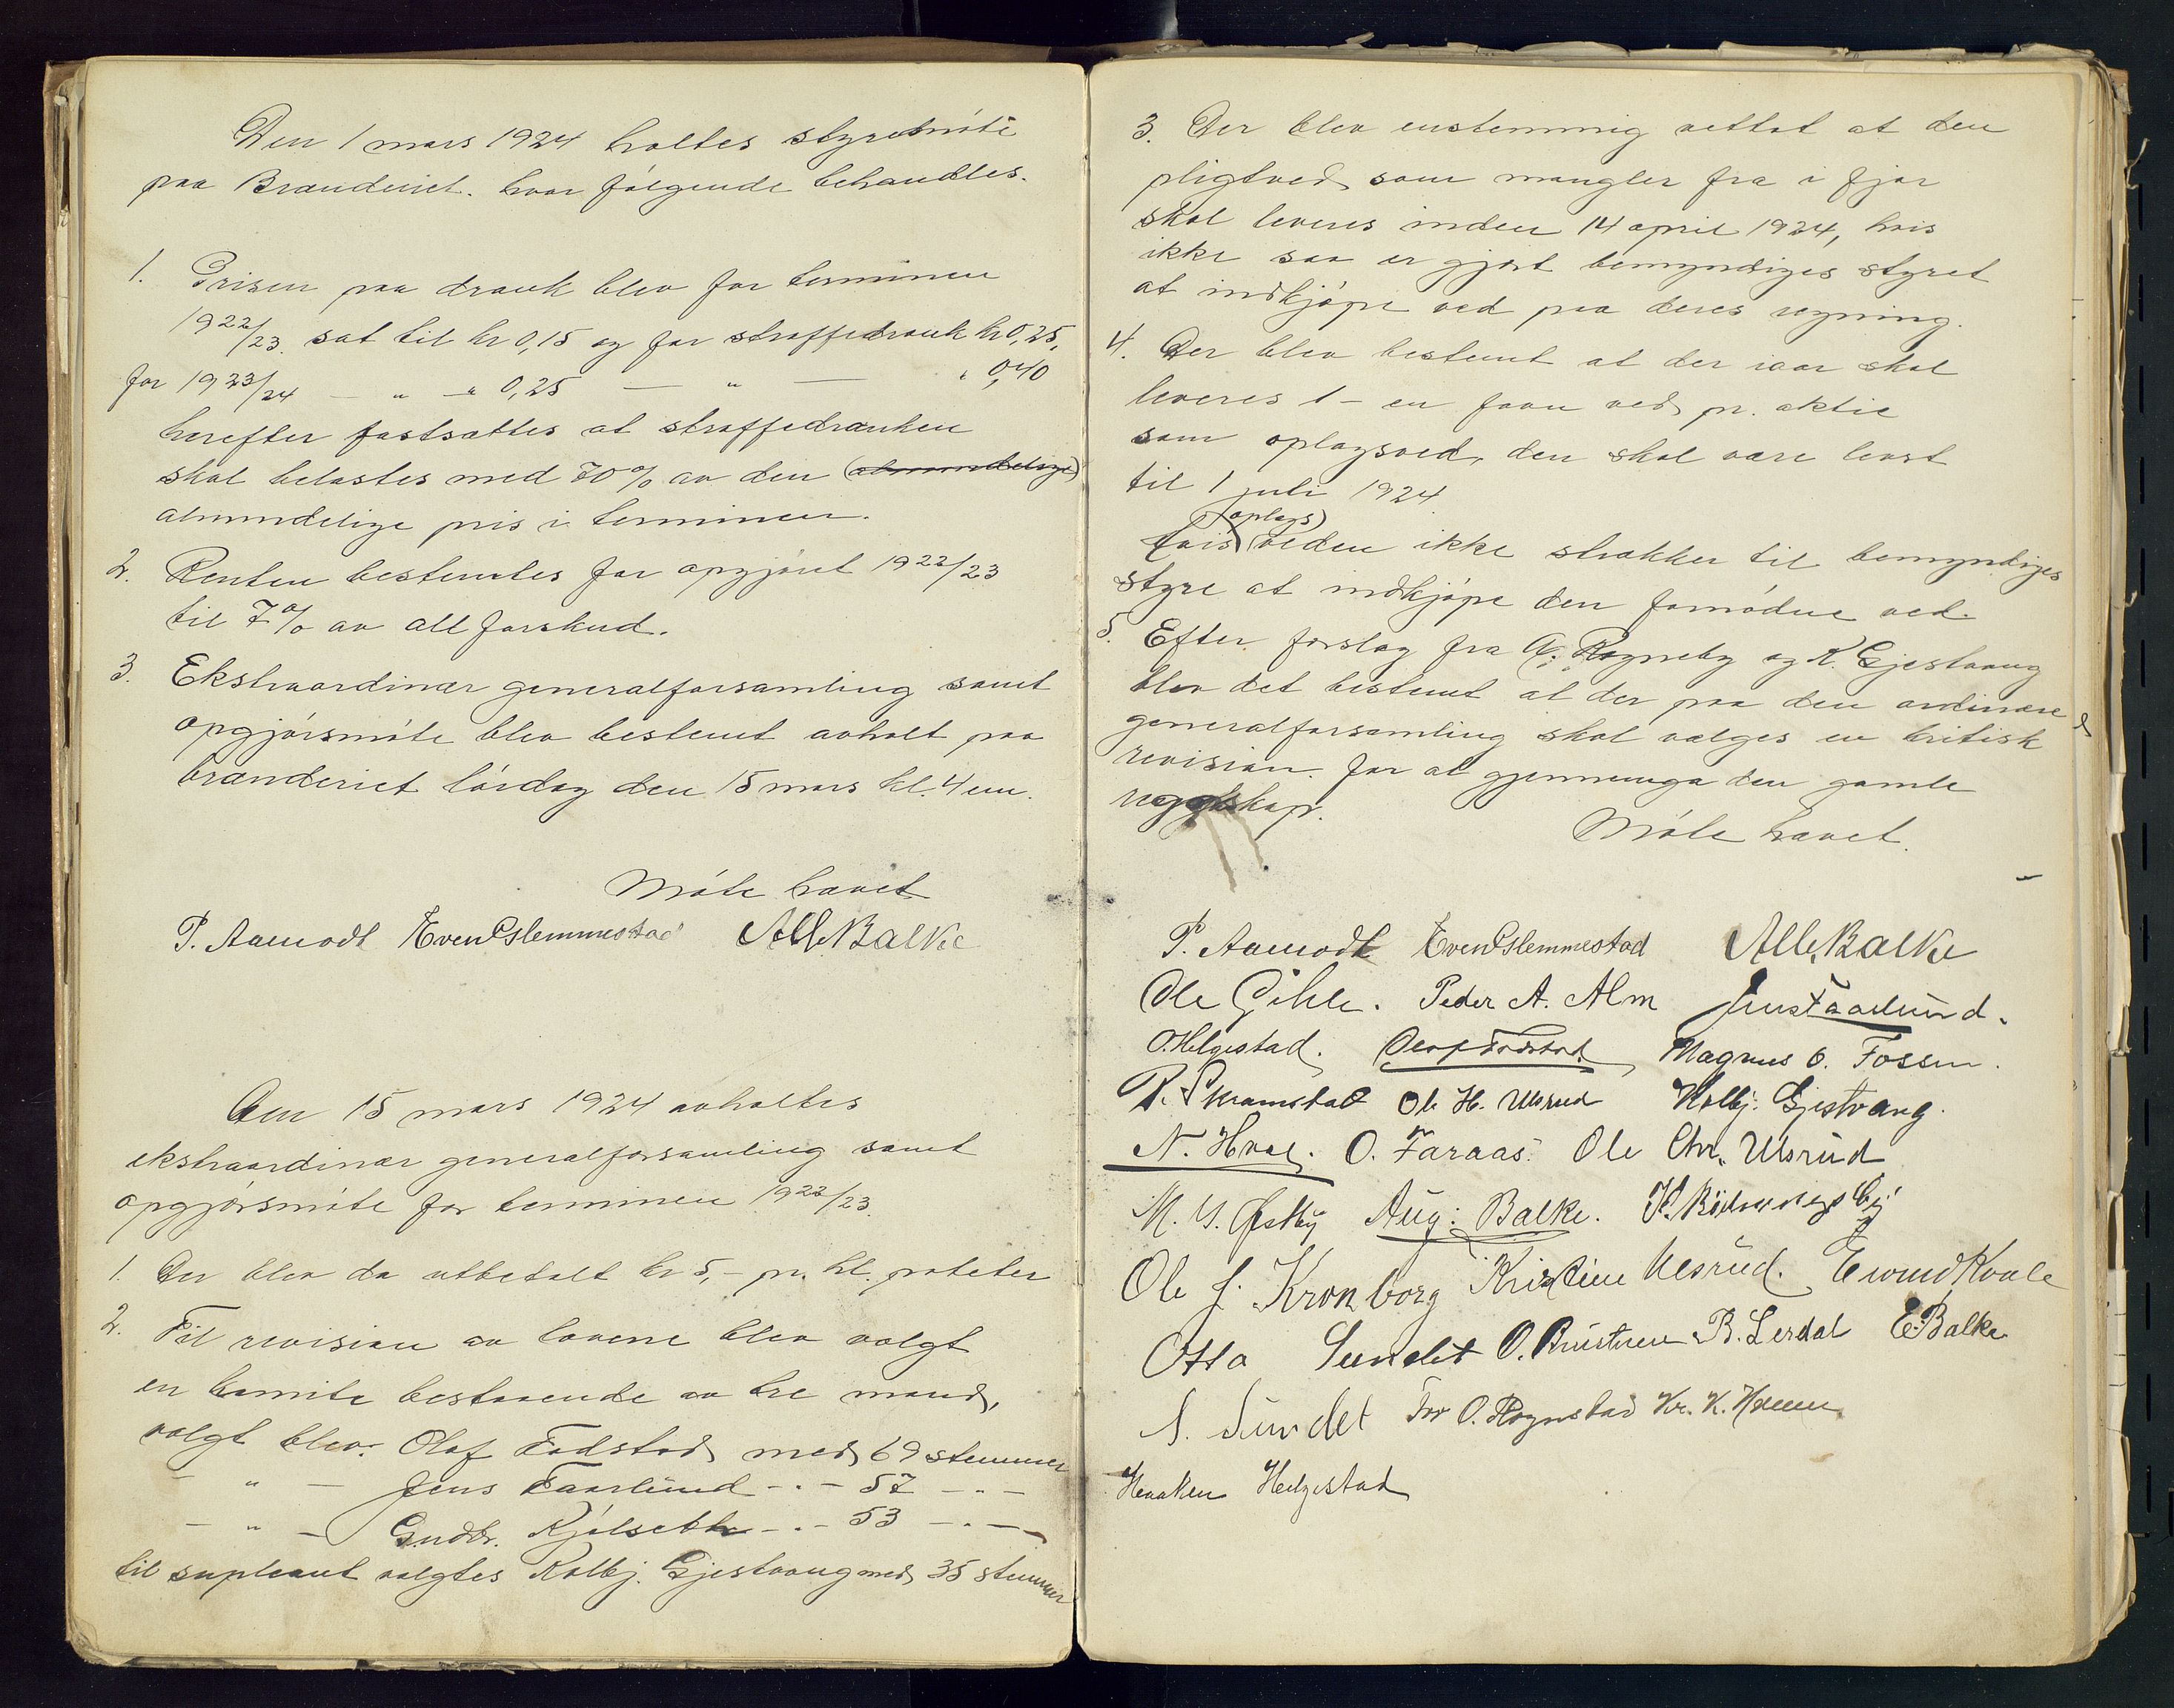 Den 1 mars 1924 holtes styremøte
paa Brænderiet. hvor følgende behandles.
1. Prisen paa drank blev for terminen
1922/23. sat til kr 0,15 og for straffedrank kr 0,25,
for 1923/24 — " — " 0,25 — " — " 0,40
herefter fastsattes at straffedranken
skal belastes med 70% av den (almindelige)
almindelige pris i terminen.
2. Renten bestemtes for opgjøret 1922/23
til 7% av all forskud.
3. Ekstraordinær generalforsamling samt
opgjørsmøte blev bestemt avholt paa
brænderiet lørdag den 15 mars kl. 4 em.
Møte hævet
P. Aamodt Even Slemmestad Alb. Balke
Den 15 mars 1924 avholtes
ekstraordinær generalforsamling samt
opgjørsmøte for terminen 1922/23.
1. Der blev da utbetalt kr 5,- pr. hl. poteter
2. Til revision av lovene blev valgt
en komite bestaaende av tre mand,
valgt blev: Olaf Fodstad med 69 stemmer
— " — Jens Faarlund - . - 57 - . -
— " — Gudbr. Kjølseth - . - 53 - . -
til supleant valgtes Kolbj. Gjestvang med 35 stemmer
3. Der blev enstemmig vettat at den
pligtved som mangler fra i fjor
skal leveres inden 14 april 1924, hvis
ikke saa er gjort bemyndiges styret
at indkjøpe ved paa deres regning.
4. Der blev bestemt at der iaar skal
leveres 1 - en favn ved pr. aktie
som oplagsved, den skal være levert
til 1 juli 1924.
(oplags)
hvis veden ikke strækker til bemyndiges
styre at indkjøpe den fornødne ved.
5. Efter forslag fra A. Rogneby og K. Gjestvang
blev det bestemt at der paa den ordinære
generalforsamling skal vælges en kritisk
revision for at gjennemgaa den gamle
regnskap.
Møte hævet.
P. Aamodt Even Slemmestad Alb. Balke
Ole Gihle. Peder A. Alm Jens Faarlund.
O. Helgestad. Olaf Fodstad. Magnus O. Fossen.
R. Skramstad Ole H. Ulsrud Kolbj. Gjestvang.
N. Hval. O. Faraas. Ole Chr. Ulsrud
M. Y. Østby Aug: Balke.
Ole J. Kronborg Kristine Ulsrud. Eivind Kvale
Otto Sundet O. B. Lerdal E. Balke
S. Sundet Tor O. Rognstad Kr. K.
Haaken Helgestad